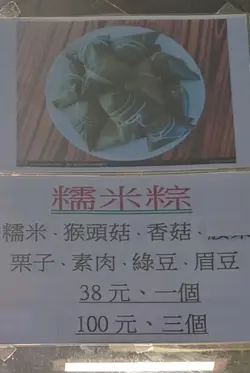 糯米粽
糯米、猴頭菇、香菇、
栗子、素肉、綠豆、眉豆
38 元、一個
100 元、三個